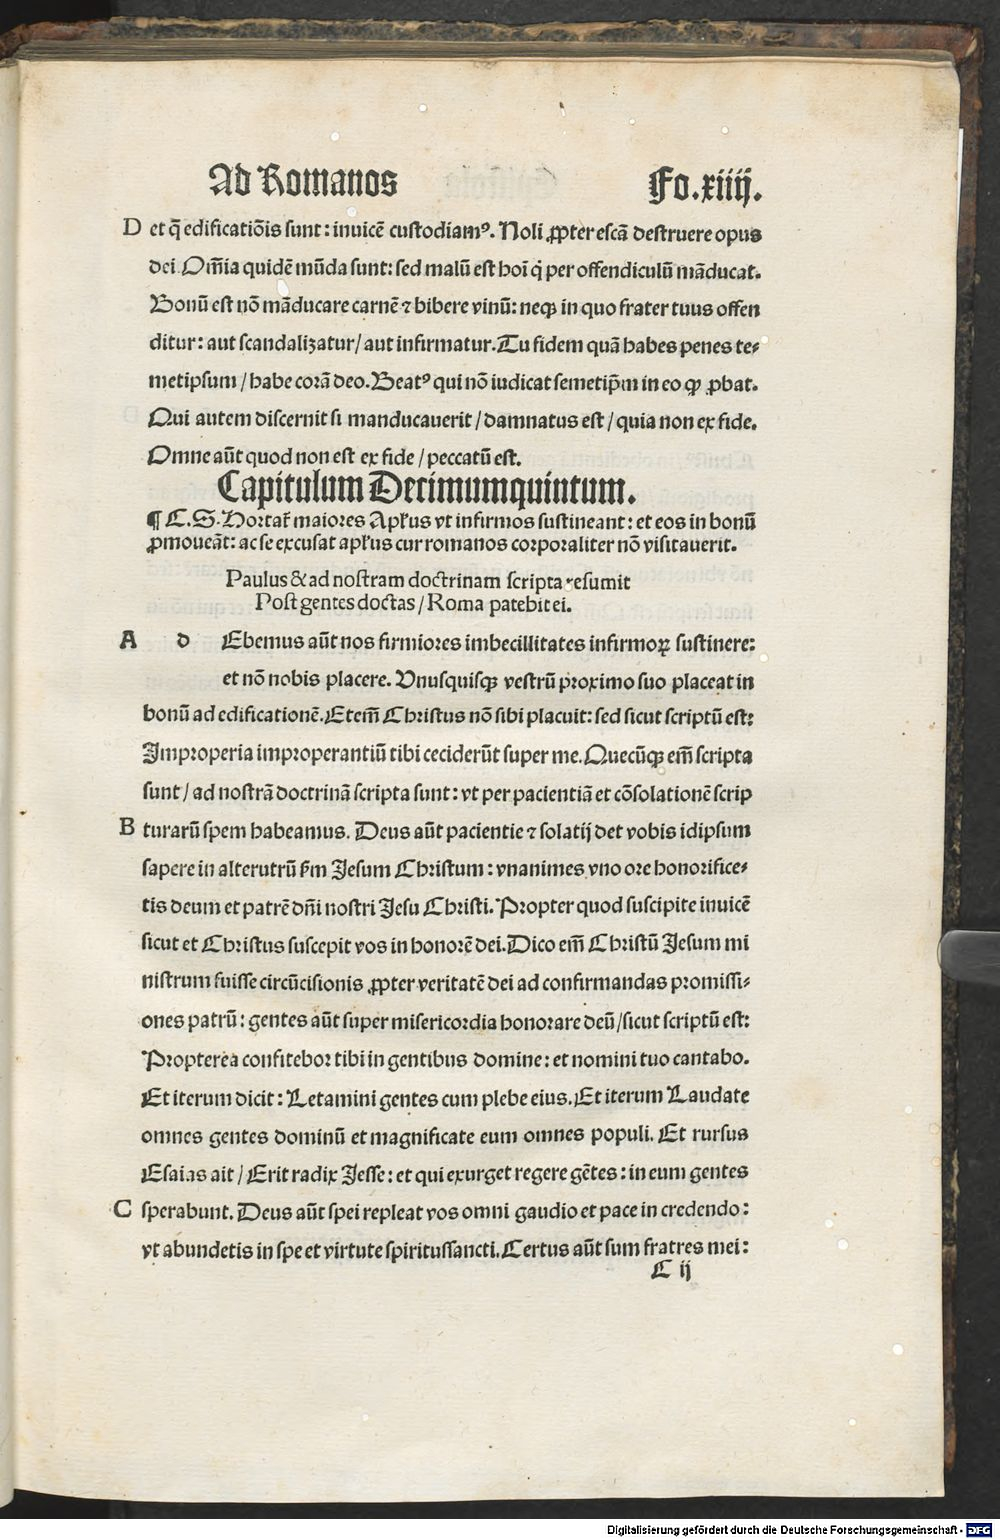 Ad Romanos Fo.xiiij.
D et q̄ edificatiōis sunt: inuicē custodiamꝰ. Noli ꝓpter escā destruere opus
dei. Om̄ia quidē mūda sunt: sed malū est hoi q̇ per offendiculū māducat.
Bonū est nō māducare carnē ⁊ bibere vinū: neqꝫ in quo frater tuus offen
ditur: aut scandalizatur/ aut infirmatur. Tu fidem quā habes penes te⸗
metipsum/ habe corā deo. Beatꝰ qui nō iudicat semetip̄m in eo qꝫ ꝓbat.
Qui autem discernit si manducauerit/ damnatus est/ quia non ex fide.
Omne aūt quod non est ex fide/ peccatū est.
Capitulum Decimumquintum.
¶ C.S. Hortat̄ maiores Apl̓us vt infirmos sustineant: et eos in bonū
ꝓmoueāt: ac se excusat apl̓us cur romanos corporaliter nō visitauerit.
Paulus & ad nostram doctrinam scripta resumit
Post gentes doctas/ Roma patebit ei.
A d Ebemus aūt nos firmiores imbecillitates infirmoꝝ sustinere:
et nō nobis placere. Vnusquisqꝫ vestrū proximo suo placeat in
bonū ad edificationē. Etem̄ Christus nō sibi placuit: sed sicut scriptū est:
Improperia improperantiū tibi ceciderūt super me. Quecūqꝫ em̄ scripta
sunt/ ad nostrā doctrinā scripta sunt: vt per pacientiā et cōsolationē scrip
B turarū spem habeamus. Deus aūt pacientie ⁊ solatij det vobis idipsum
sapere in alterutrū ẜm Jesum Christum: vnanimes vno ore honorifice⸗
tis deum et patrē dn̄i nostri Jesu Christi. Propter quod suscipite inuicē
sicut et Christus suscepit vos in honorē dei. Dico em̄ Christū Jesum mi
nistrum fuisse circūcisionis ꝓpter veritatē dei ad confirmandas promissi⸗
ones patrū: gentes aūt super misericordia honorare deū/ sicut scriptū est:
Propterea confitebor tibi in gentibus domine: et nomini tuo cantabo.
Et iterum dicit: Letamini gentes cum plebe eius. Et iterum Laudate
omnes gentes dominū et magnificate eum omnes populi. Et rursus
Esaias ait/ Erit radix Jesse: et qui exurget regere gētes: in eum gentes
C sperabunt. Deus aūt spei repleat vos omni gaudio et pace in credendo:
vt abundetis in spe et virtute spiritussancti. Certus aūt sum fratres mei:
C ij
Digitalisierung gefördert durch die Deutsche Forschungsgemeinschaft - DFG